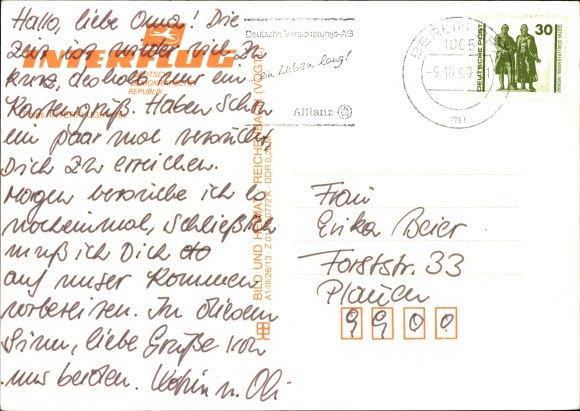 Hallo, liebe Oma! Die
Zeit ist wieder viel zu
kurz, deshalb nur ein
Kartengruß. Haben schon
ein paar mal versucht,
Dich zu erreichen.
Morgen versuche ich es
nocheinmal, schließlich
muß ich Dich
auf unser Kommen
vorbereiten. In diesem
Sinn, liebe Grüße von
uns beiden.
INTERFLUG
DEUTSCHEN
DEMOKRATISCHEN
REPUBLIK
BILD UND HEIMAT REICHENBACH (VOGTL)
A1/III/26/13
DDR
Deutsche Versicherungs-AG
ein Leben lang!
Allianz
BERLIN
1085
-9.10.90
mi
DEUTSCHE POST
30
Frau
Erika Beier
Forststr. 33
Plauen
9900